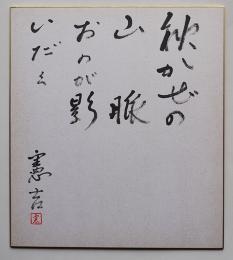 秋かぜの
山脈
おのが影
いだく
憲吉